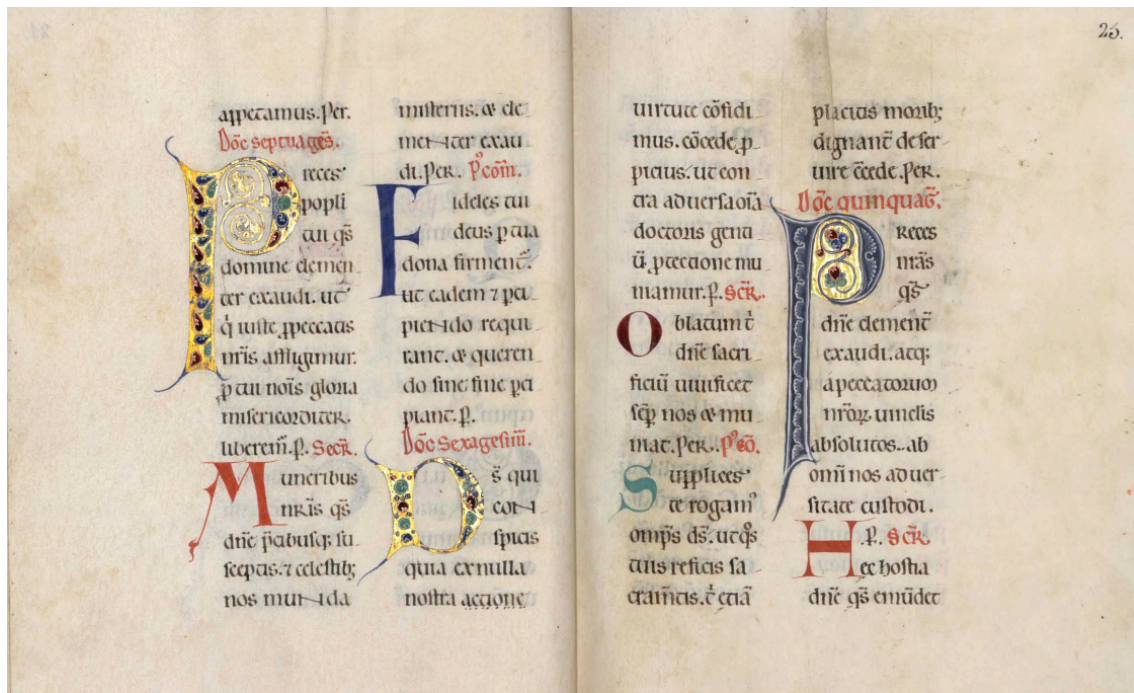 appetamus. Per.
Dõc septuages̃.
Preces
popli
tui qs̃
domine clemen
ter exaudi. ut
q̇ iuste ꝓ peccatis
nr̃is affligimur.
ꝓ tui nõis gloria
misericorditer.
liberem̃. P̱. Secr̃.
Muneribus
nr̃is qs̃
dñe p̃cibusq; su
sceptis. ⁊ celestib;
nos munda
misteriis. & cle
menter exau
di. Per. Pꝰ com̃.
Fideles tui
deus p̱ tua
dona firment̃.
ut eadem ⁊ pci
piendo requi
rant. & queren
do sine fine pci
piant. P̱.
Dõc Sexagesim̃.
Ds̃ qui
con
spicis
quia ex nulla
nostra actione
25.
uirtute cõfidi
mus. cõcede, p
picius. ut con
tra aduersa oĩa
doctoris genti
ũ, ptectione mu
niamur. P̱. Scr̃.
Oblatum t̃
dñe sacri
ficiũ uiuificet
sep̃ nos & mu
niat. Per.. Pꝰ cõ.
Supplices
te rogamꝰ
omp̃s ds̃. ut qꝰs
tuis reficis sa
cram̃tis. t̃ etiã
placitis morib;
dignant̃ deser
uire c̃cede. Per.
Dõc quinquag̃.
Preces
nr̃as
qs̃
dñe clement̃
exaudi. atq:
a peccatorum
nr̃oꝝ uinclis
absolutos.. ab
om̃i nos aduer
sitate custodi.
.P̱. Scr̃.
Hec hostia
dñe qs̃ emũdet